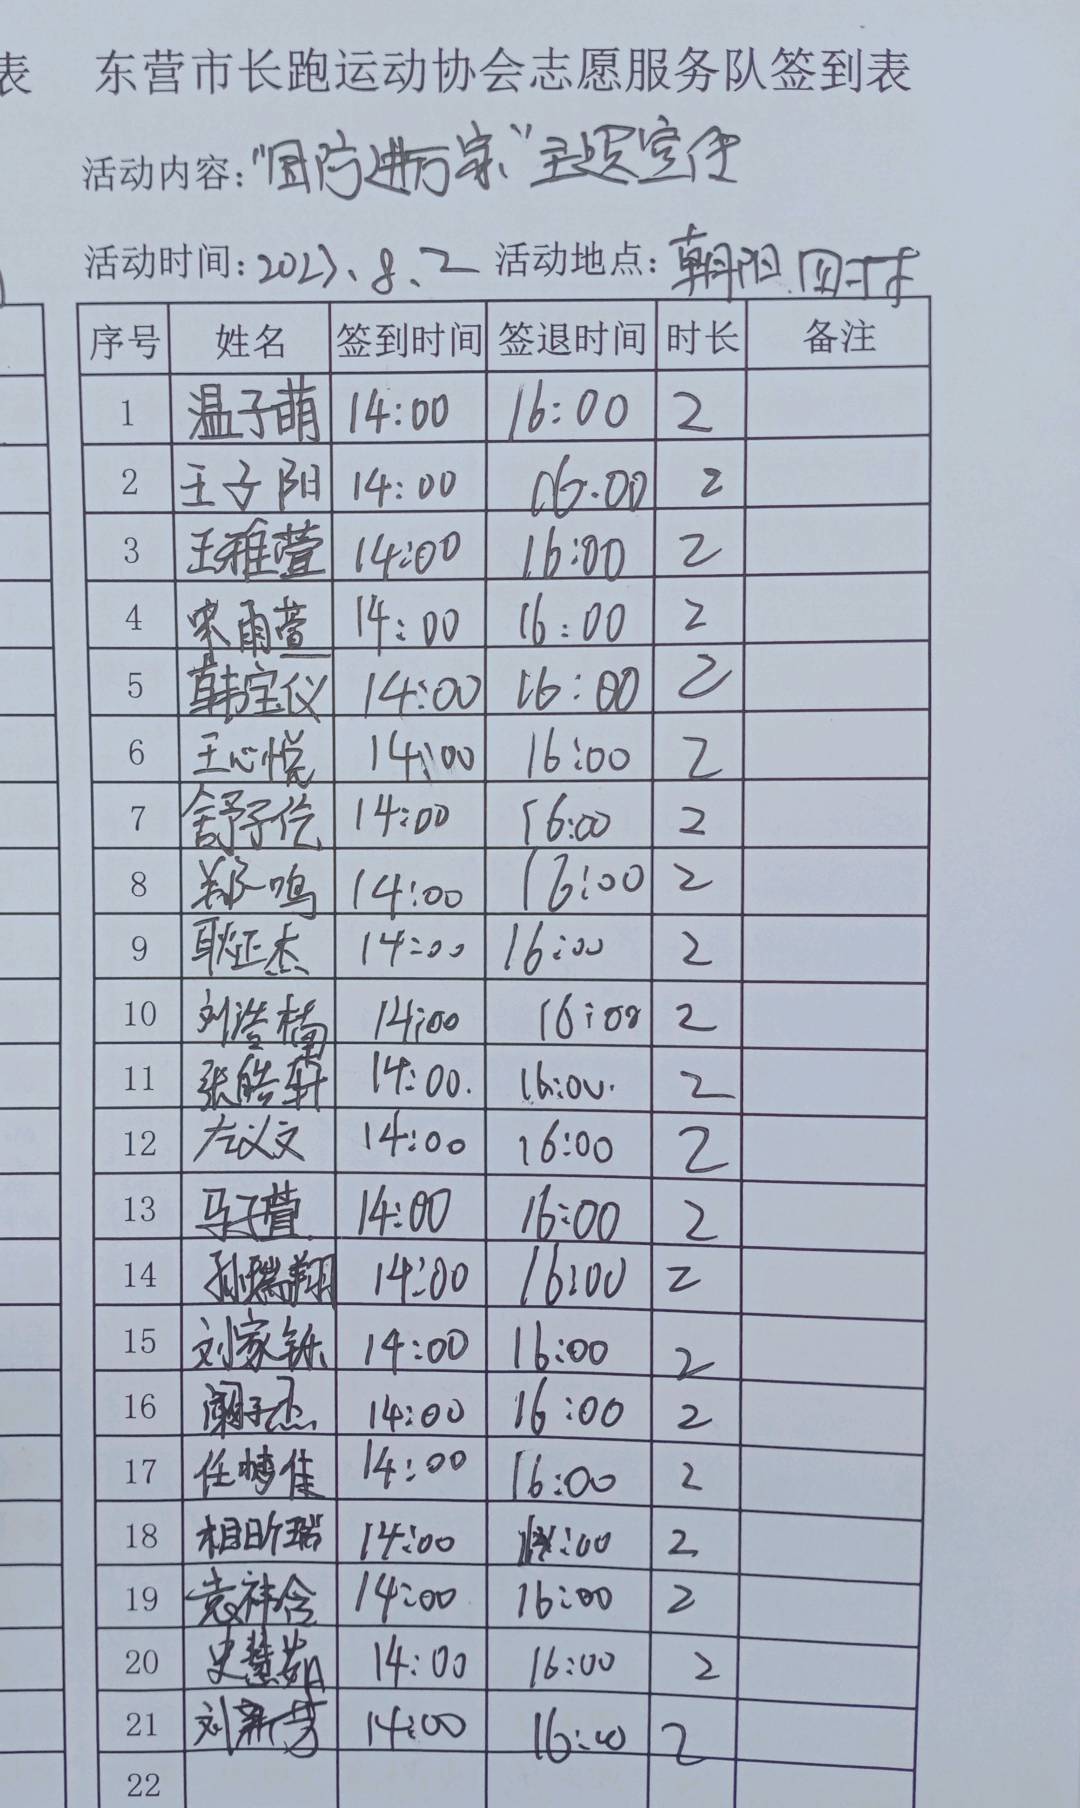 表 东营市长跑运动协会志愿服务队签到表
活动内容："国防进万家"主题宣传
活动时间：2023.8.2 活动地点：朝阳四村
序号 姓名 签到时间 签退时间 时长 备注
1 温子萌 14:00 16:00 2
2 王子阳 14:00 16:00 2
3 王雅萱 14:00 16:00 2
4 宋雨萱 14:00 16:00 2
5 韩宝仪 14:00 16:00 2
6 王心悦 14:00 16:00 2
7 舒子 14:00 16:00 2
8 郑一鸣 14:00 16:00 2
9 耿正杰 14:00 16:00 2
10 刘浩楠 14:00 16:00 2
11 张皓轩 14:00. 16:00. 2
12 左义文 14:00 16:00 2
13 马子萱 14:00 16:00 2
14 孙瑞翔 14:00 16:00 2
15 刘家铄 14:00 16:00 2
16 子杰 14:00 16:00 2
17 任梦佳 14:00 16:00 2
18 相昕瑞 14:00 :00 2
19 袁祎 14:00 16:00 2
20 史慧茹 14:00 16:00 2
21 刘新芳 14:00 16:00 2
22